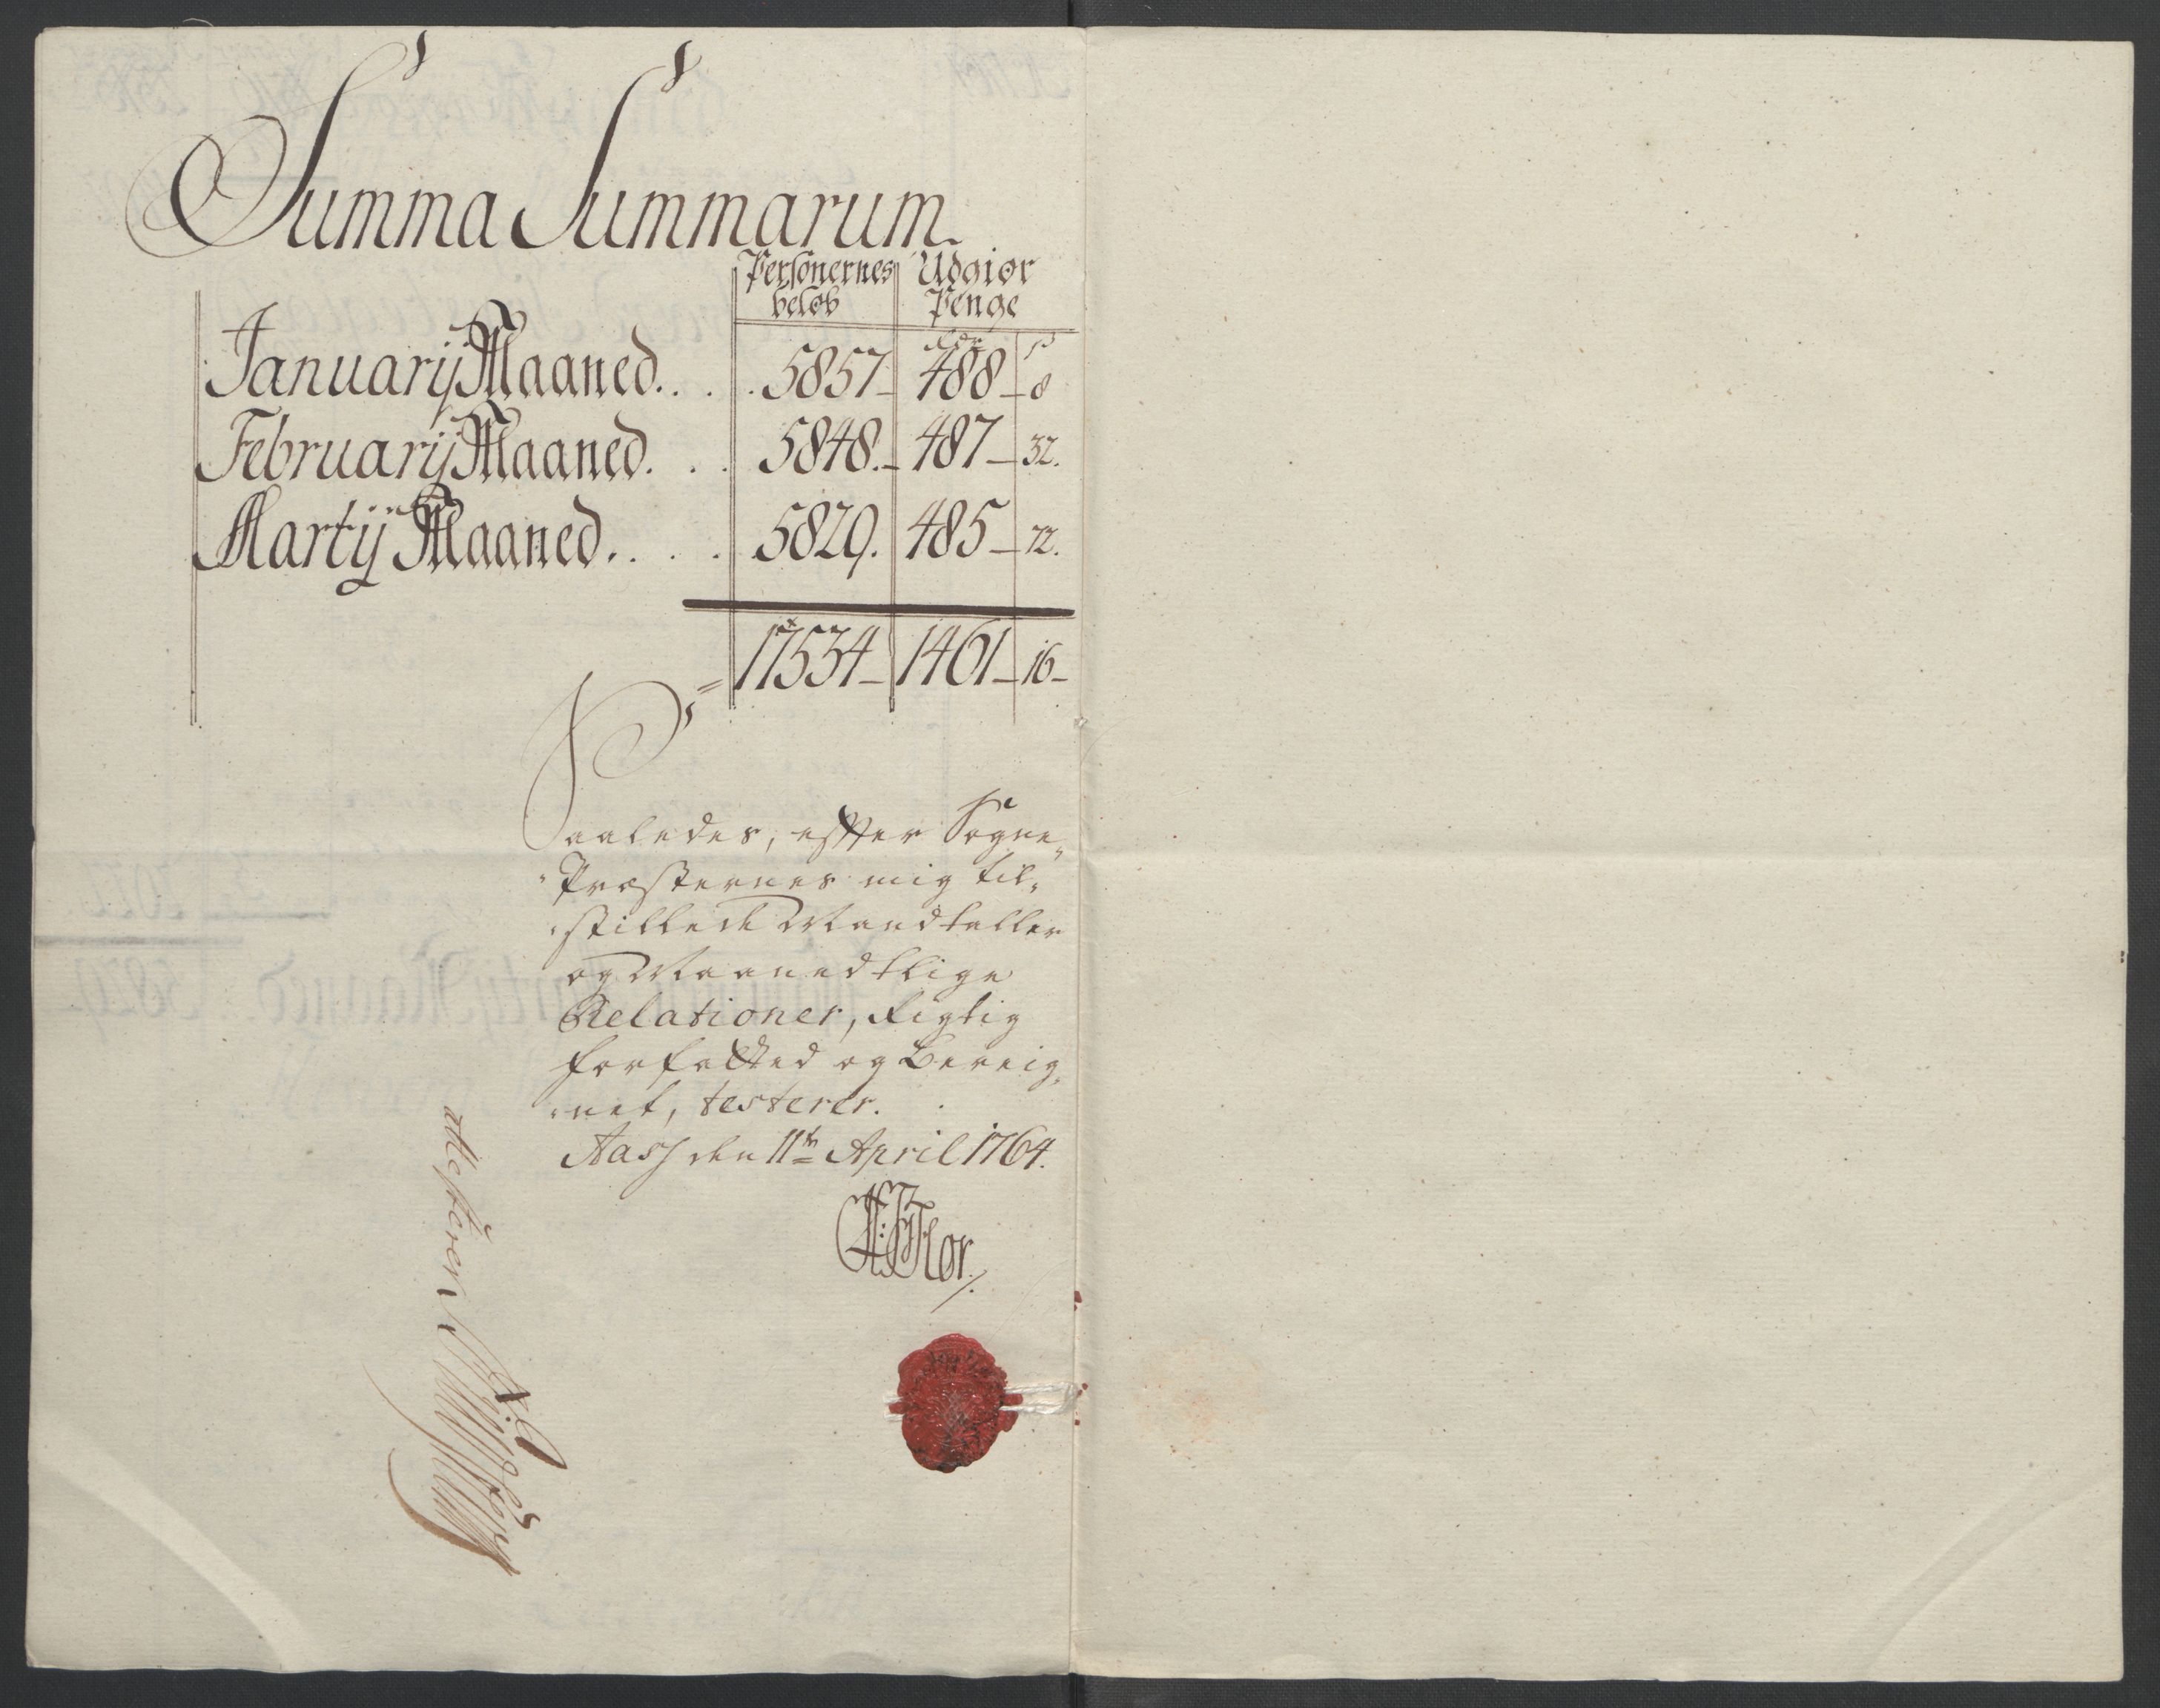 Summa Summarum
Personernes beløb Udgiør Penge
Januarij Maaned. . . . 5857 – 488 – 8
Februarij Maaned. . . 5848. – 487 – 32.
Martij Maaned. . . . 5829. 485 – 72.
17534 – 1461 – 16 –
Saaledes, efter Sogne-
Præsternes mig til-
stillede Mandtaller
og Maanedtlige
Relationer, rigtig
forfatted og bereig-
net, testerer.
Aas den 11te April 1764.
Flor.
attesterer